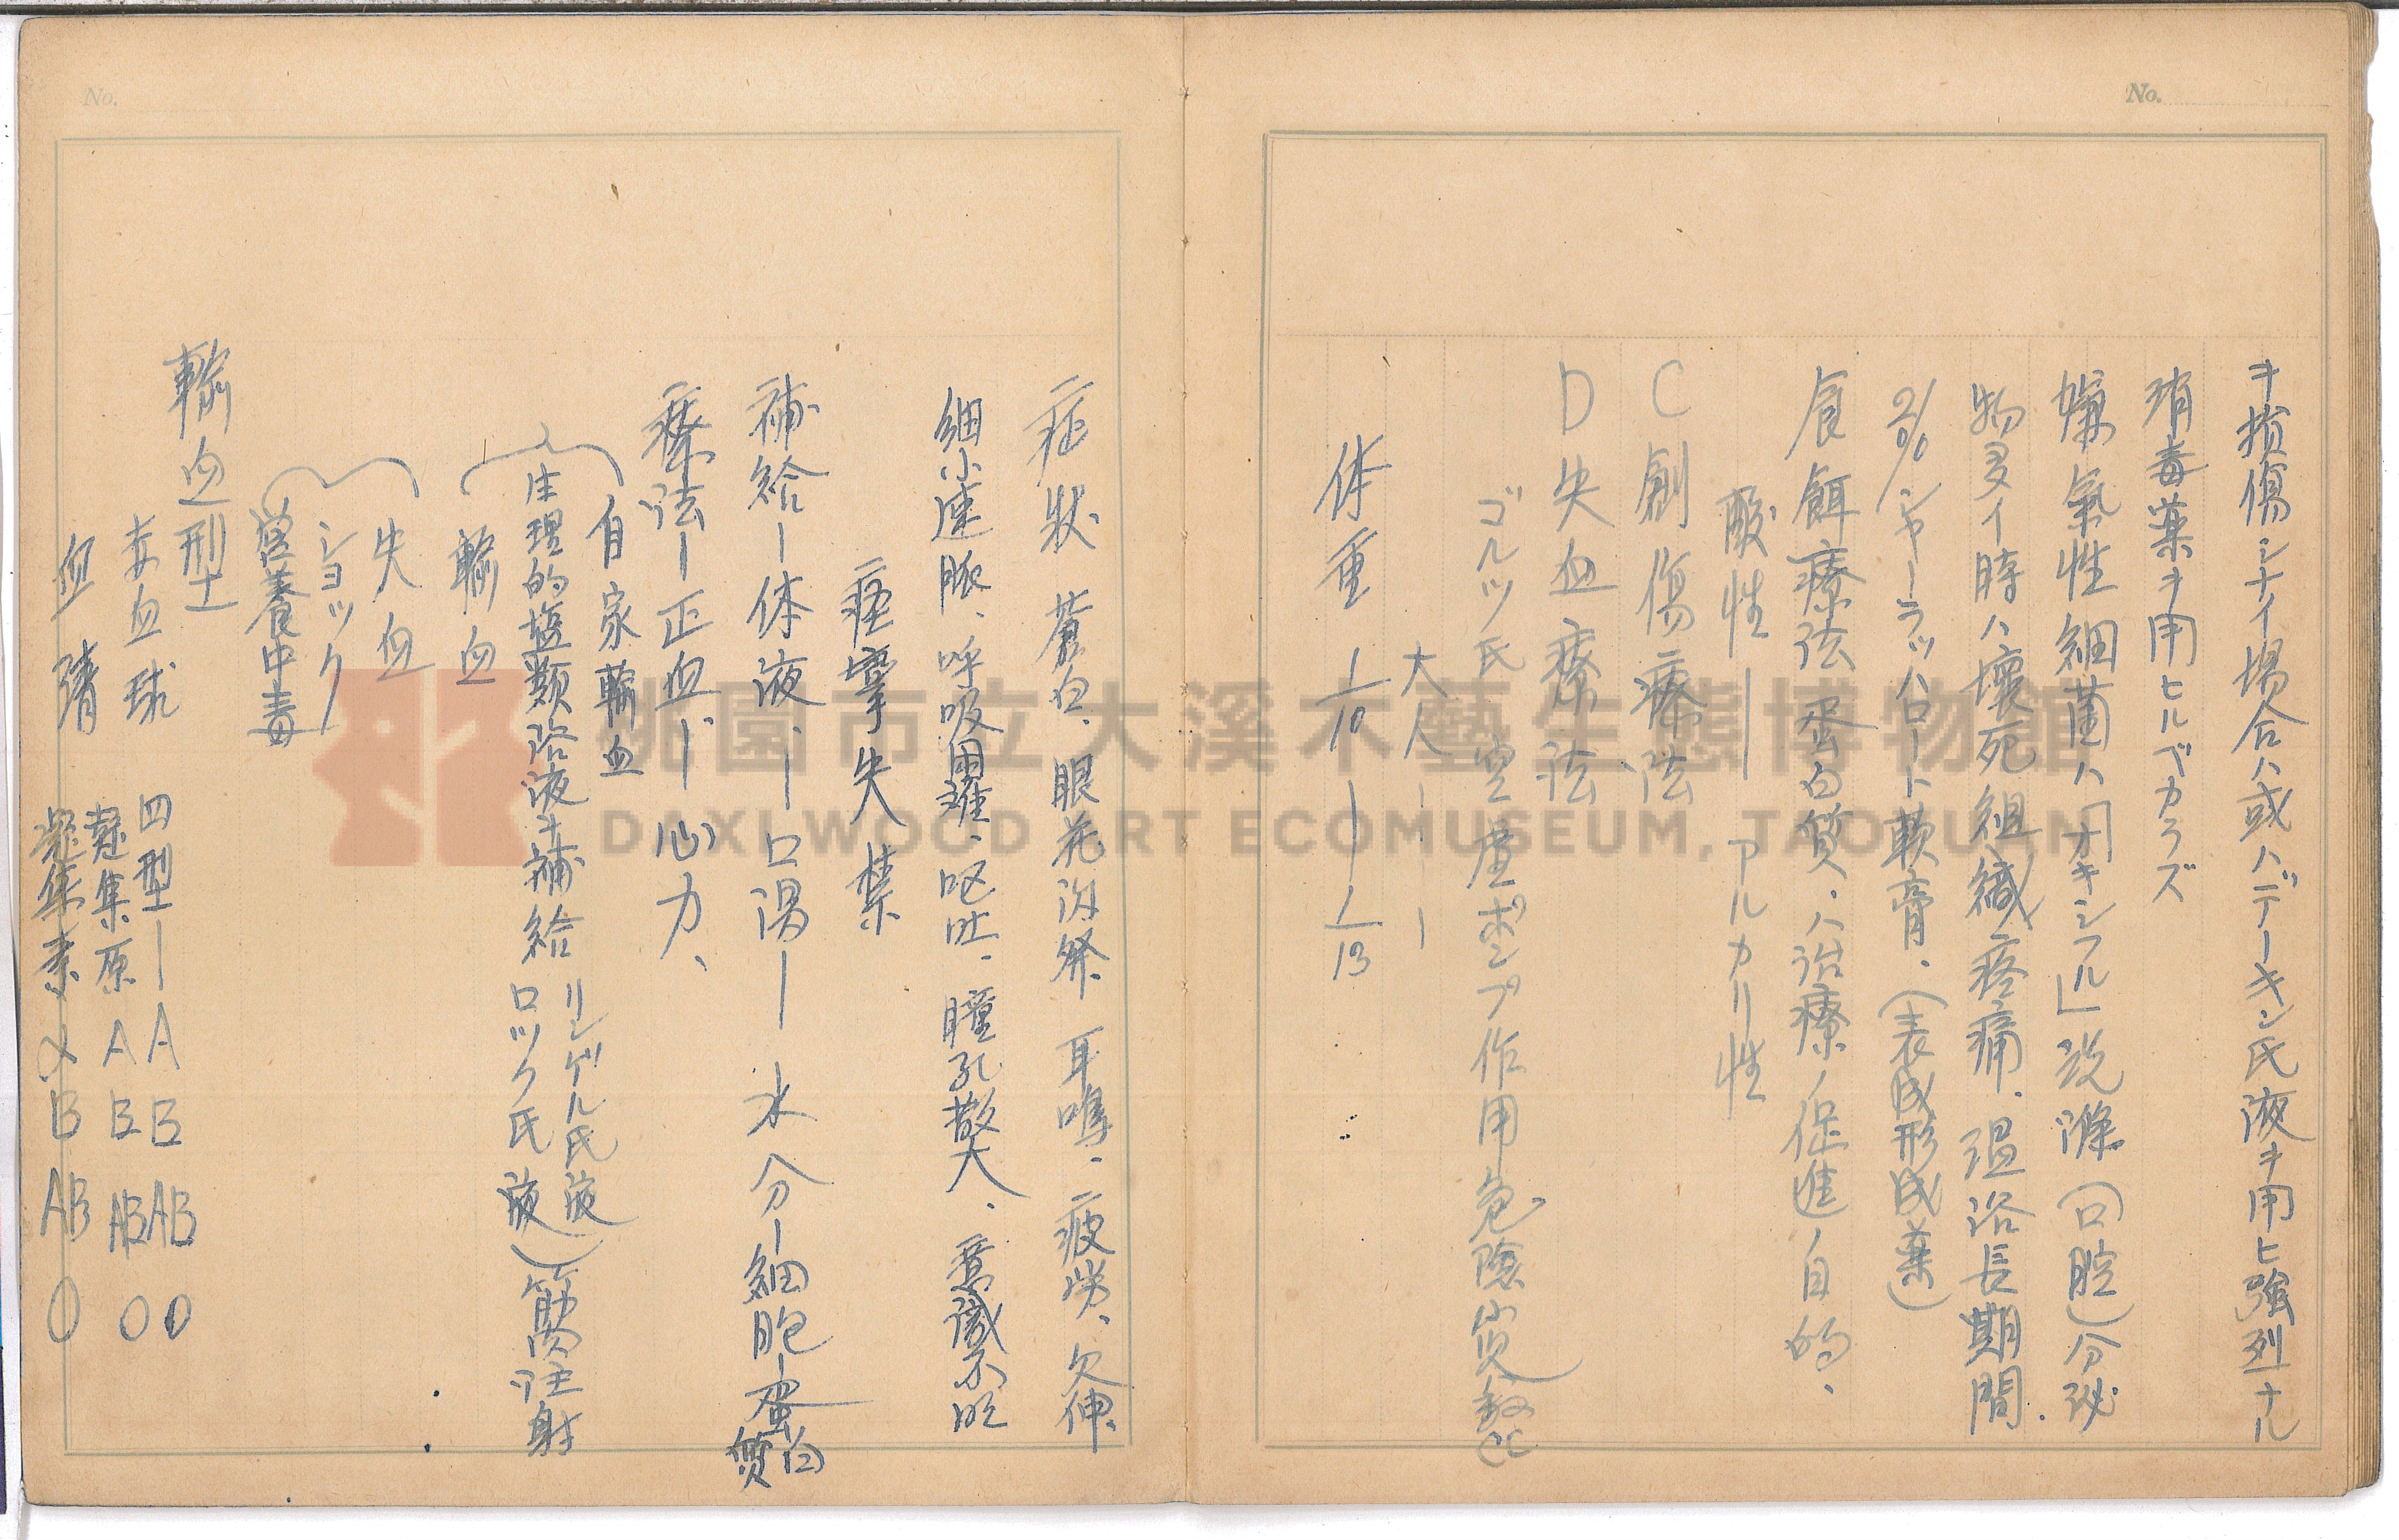 No.
ヲ損傷シナイ場合ハ或ハデーキン氏液ヲ用ヒ強烈ナル
消毒薬ヲ用ヒルベカラズ
嫌氣性細菌ハ「オキシフル」洗滌(口腔)分泌
物多イ時ハ壊死組織疼痛、温浴長期間.
2%シャーラッハロート軟膏、(表成形成薬)
食餌療法 蛋白質、ハ治療ノ促進ノ目的、
酸性—— アルカリ性
C 創傷療法
D 失血療法
ゴルツ氏 空虚ポンプ作用危險
大人
体重 1/10 — 1/13
No.
症状 蒼白、眼花闪発、耳鳴、疲労、欠伸、
細小速脈、呼吸困難、呕吐、瞳孔散大、意識不明
痙攣失禁
補給ー体液、ー口渇ー水分ー細胞ー蛋白質
療法ー正血ー心力、
自家輸血
生理的塩類溶液ヲ補給 リンゲル氏液 ロック氏液 (筋肉注射
輸血
失血
ショック
営養中毒
輸血型
四型ー A B AB O
赤血球 凝集原 A B AB O
血清 凝集素 α B AB O
桃園市立大溪木藝生態博物館
DAXI WOOD ART ECOMUSEUM, TAOYUAN